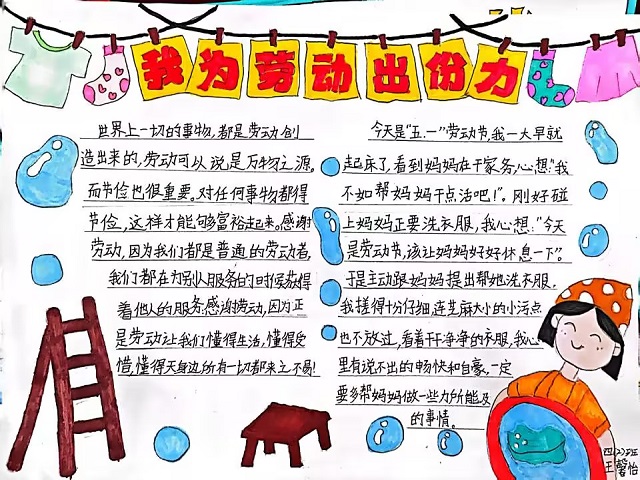 我为劳动出份力
世界上一切的事物,都是劳动创
造出来的,劳动可以说是万物之源。
而节俭也很重要。对任何事物都得
节俭,这样才能够富裕起来。感谢
劳动,因为我们都是普通的劳动者,
我们都在为别人服务的同时获得
着他人的服务.感谢劳动,因为正
是劳动让我们懂得生活,懂得受
惜,懂得天身边所有一切都来之不易!
今天是“五.一”劳动节,我一大早就
起床了,看到妈妈在干家务,心想:“我
不如帮妈妈干点活吧!”。刚好碰
上妈妈正要洗衣服,我心想:“今天
是劳动节,该让妈妈好好休息一下”?
于是主动跟妈妈提出帮她洗衣服.
我搓得十分仔细,连芝麻大小的小污点
也不放过,看着干干净净的衣服,我心
里有说不出的畅快和自豪,一定
要多帮妈妈做一些力所能及
的事情。
四(2)班
王馨怡